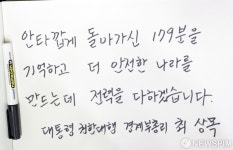 안타깝게 돌아가신 179분을
기억하고 더 안전한 나라를
만드는데 전력을 다하겠습니다.
대통령 권한대행 경제부총리 최 상목
NEWSPIM